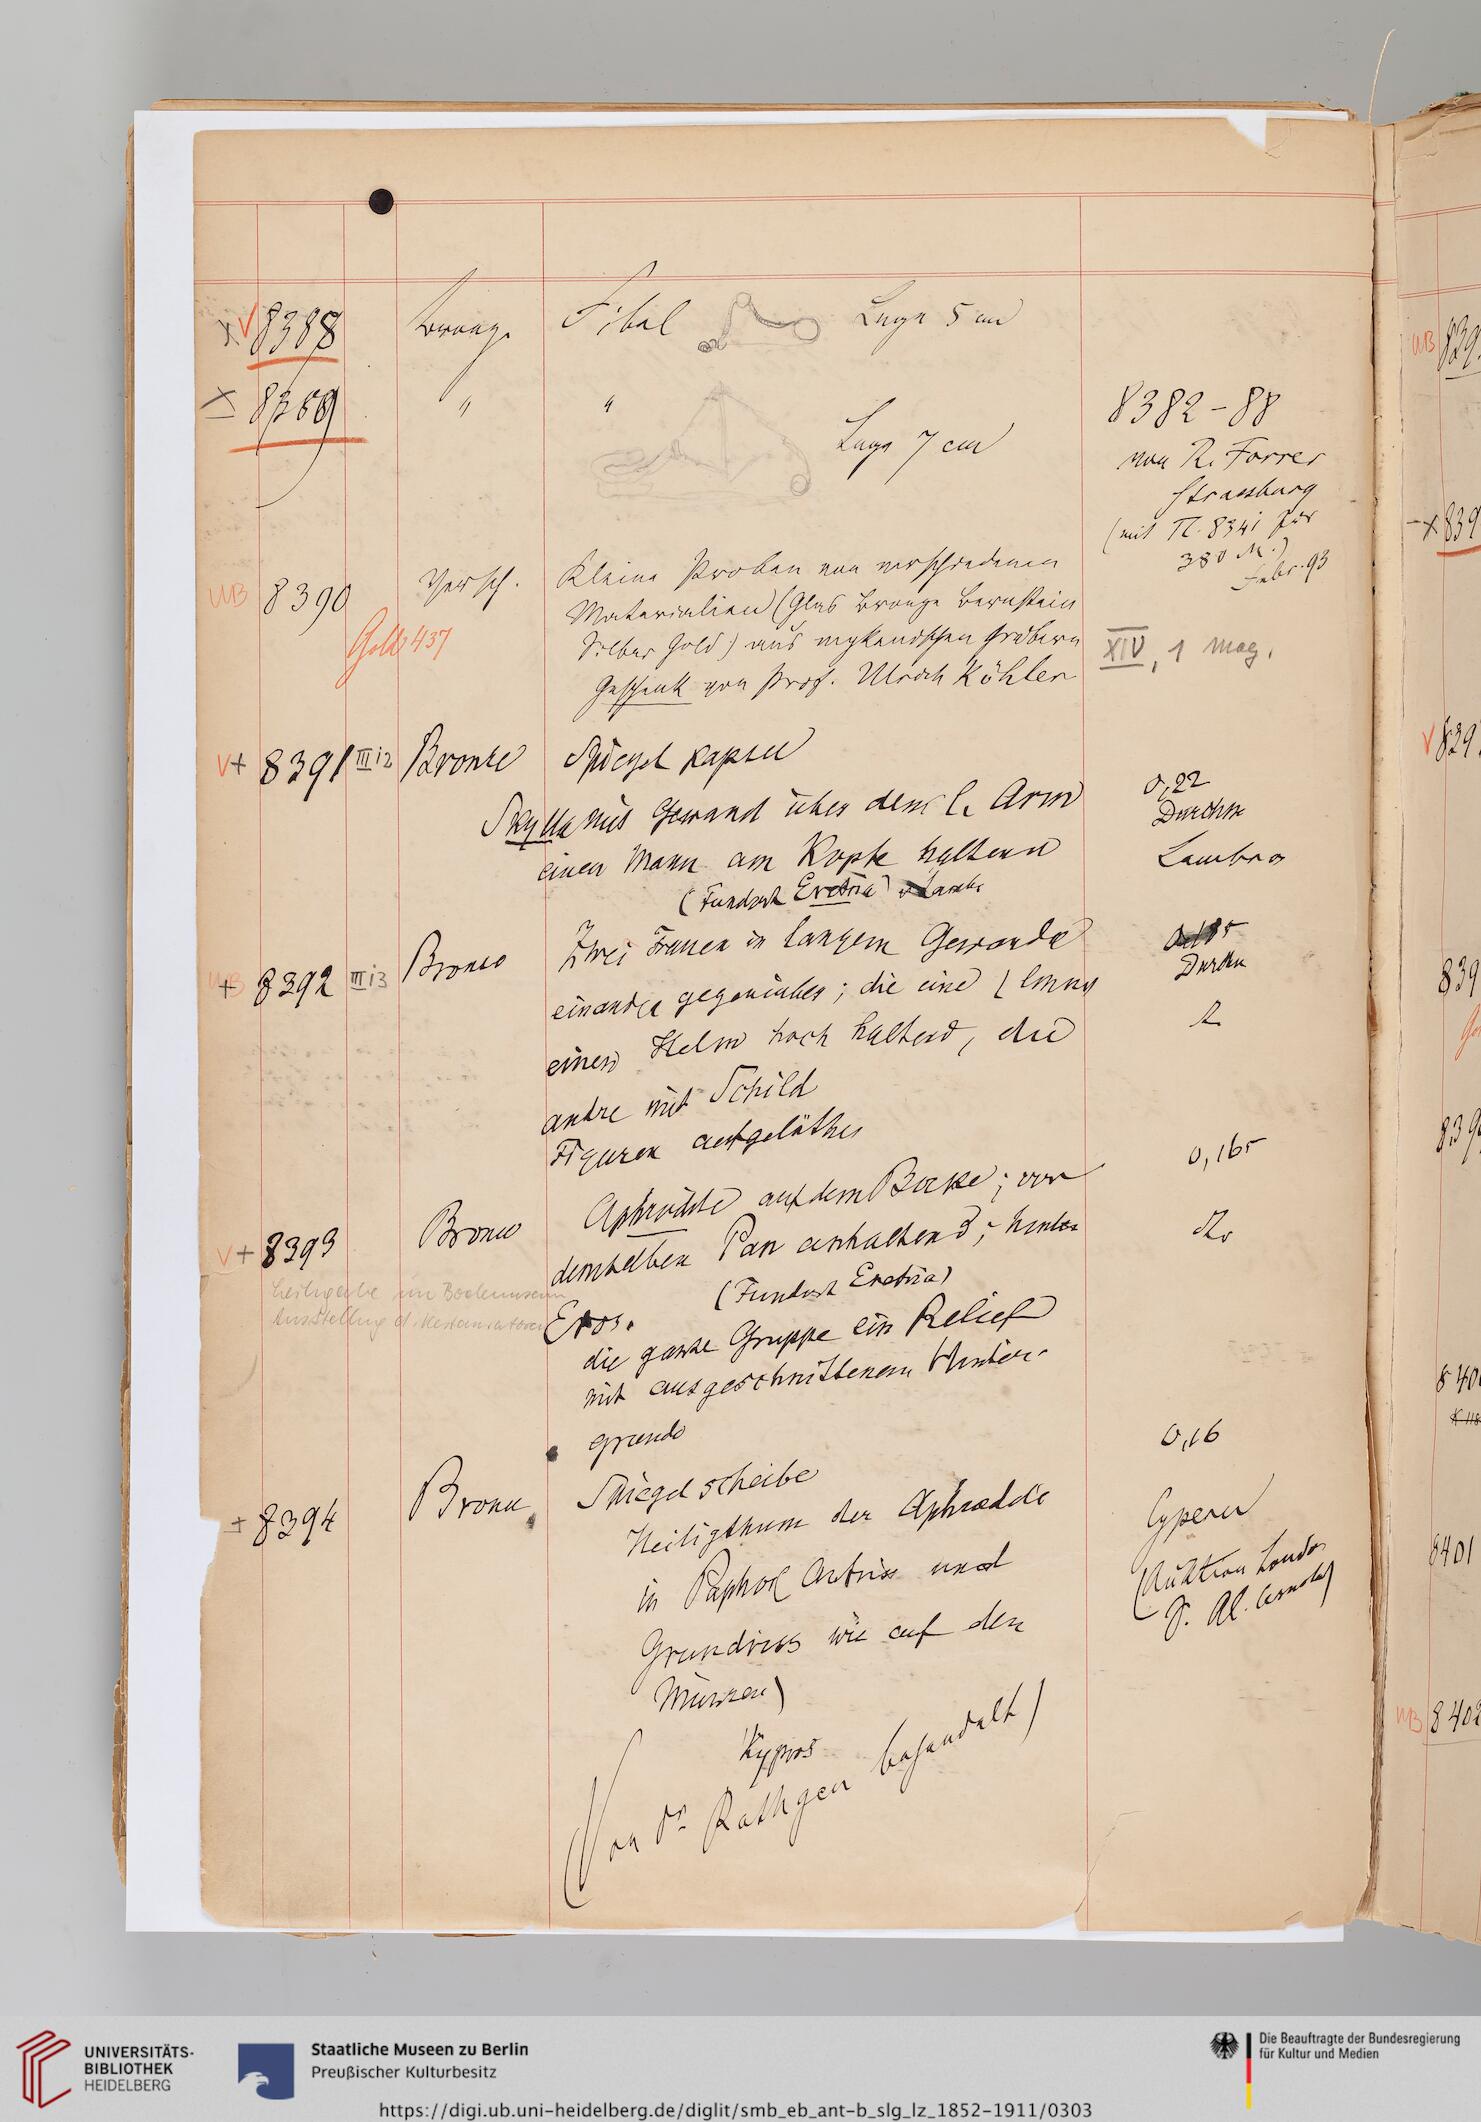 8388 Bronze Fibel Länge 5 cm
8389 " " Länge 7 cm
8382-88
von R. Forrer
Strassburg
(mit N. 8341 für
380 M.)
Febr. 93
UB 8390 Versch. Kleine Proben von verschiedenen
Gold 437
Materialien (Glas Bronze Bernstein
Silber Gold) aus mykenischen Gräbern
Geschenk von Prof. Ulrich Köhler
XIV, 1 Mag.
V+ 8391 III i2 Bronze Spiegelkapsel
Skylla mit Gewand über dem l. Arm
einen Mann am Kopfe haltend
(Fundort Eretria)
0,22
Durchm
Lambros
UB + 8392 III i3 Bronze Zwei Frauen in langem Gewande
einander gegenüber; die eine l
einen Helm hoch haltend, die
andre mit Schild
Figuren aufgelöthet
Durchm
V+ 8393 Bronze Aphrodite auf dem Bocke; vor
demselben Pan anhaltend; hinten
(Fundort Eretria)
Eros.
die ganze Gruppe ein Relief
mit ausgeschnittenem Hinter-
grunde
0,165
Leihgabe im Bodemuseum
Ausstellung d. Restauratoren
+ 8394 Bronze Spiegelscheibe
Heiligthum der Aphrodite
in Paphos Aufriss und
Grundriss wie auf den
Münzen)
Kypros
(Von Dr Rathgen behandelt)
0,16
Cypern
(Auktion London
UB
839
839
839
839
8401
UB 8402
UNIVERSITÄTS-
BIBLIOTHEK
HEIDELBERG
Staatliche Museen zu Berlin
Preußischer Kulturbesitz
Die Beauftragte der Bundesregierung
für Kultur und Medien
https://digi.ub.uni-heidelberg.de/diglit/smb_eb_ant-b_slg_lz_1852-1911/0303